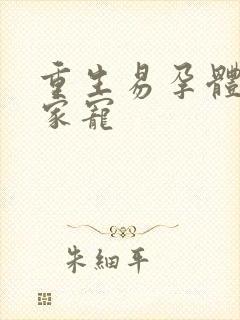 重生易孕體
家寵
朱細平